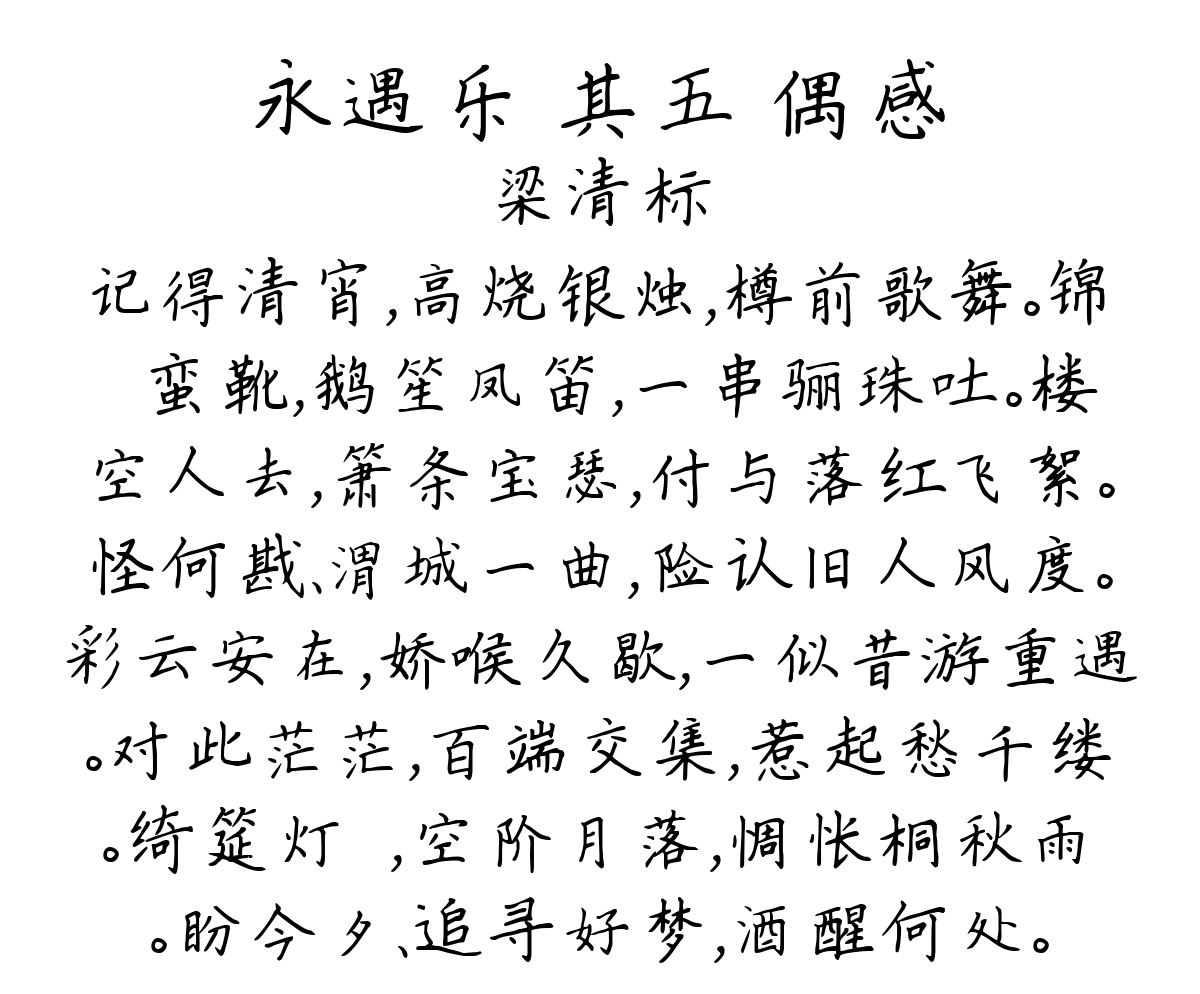 永遇乐 其五 偶感
梁清标
记得清宵,高烧银烛,樽前歌舞。锦
蛮靴,鹅笙凤笛,一串骊珠吐。楼
空人去,箫条宝瑟,付与落红飞絮。
怪何戡、渭城一曲,险认旧人风度。
彩云安在,娇喉久歇,一似昔游重遇
。对此茫茫,百端交集,惹起愁千缕
。绮筵灯 ,空阶月落,惆怅桐秋雨
。盼今夕、追寻好梦,酒醒何处。